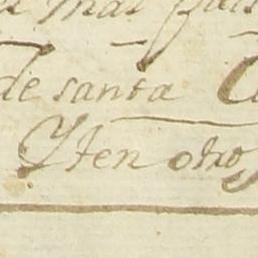 mas
de santa
Yten otro